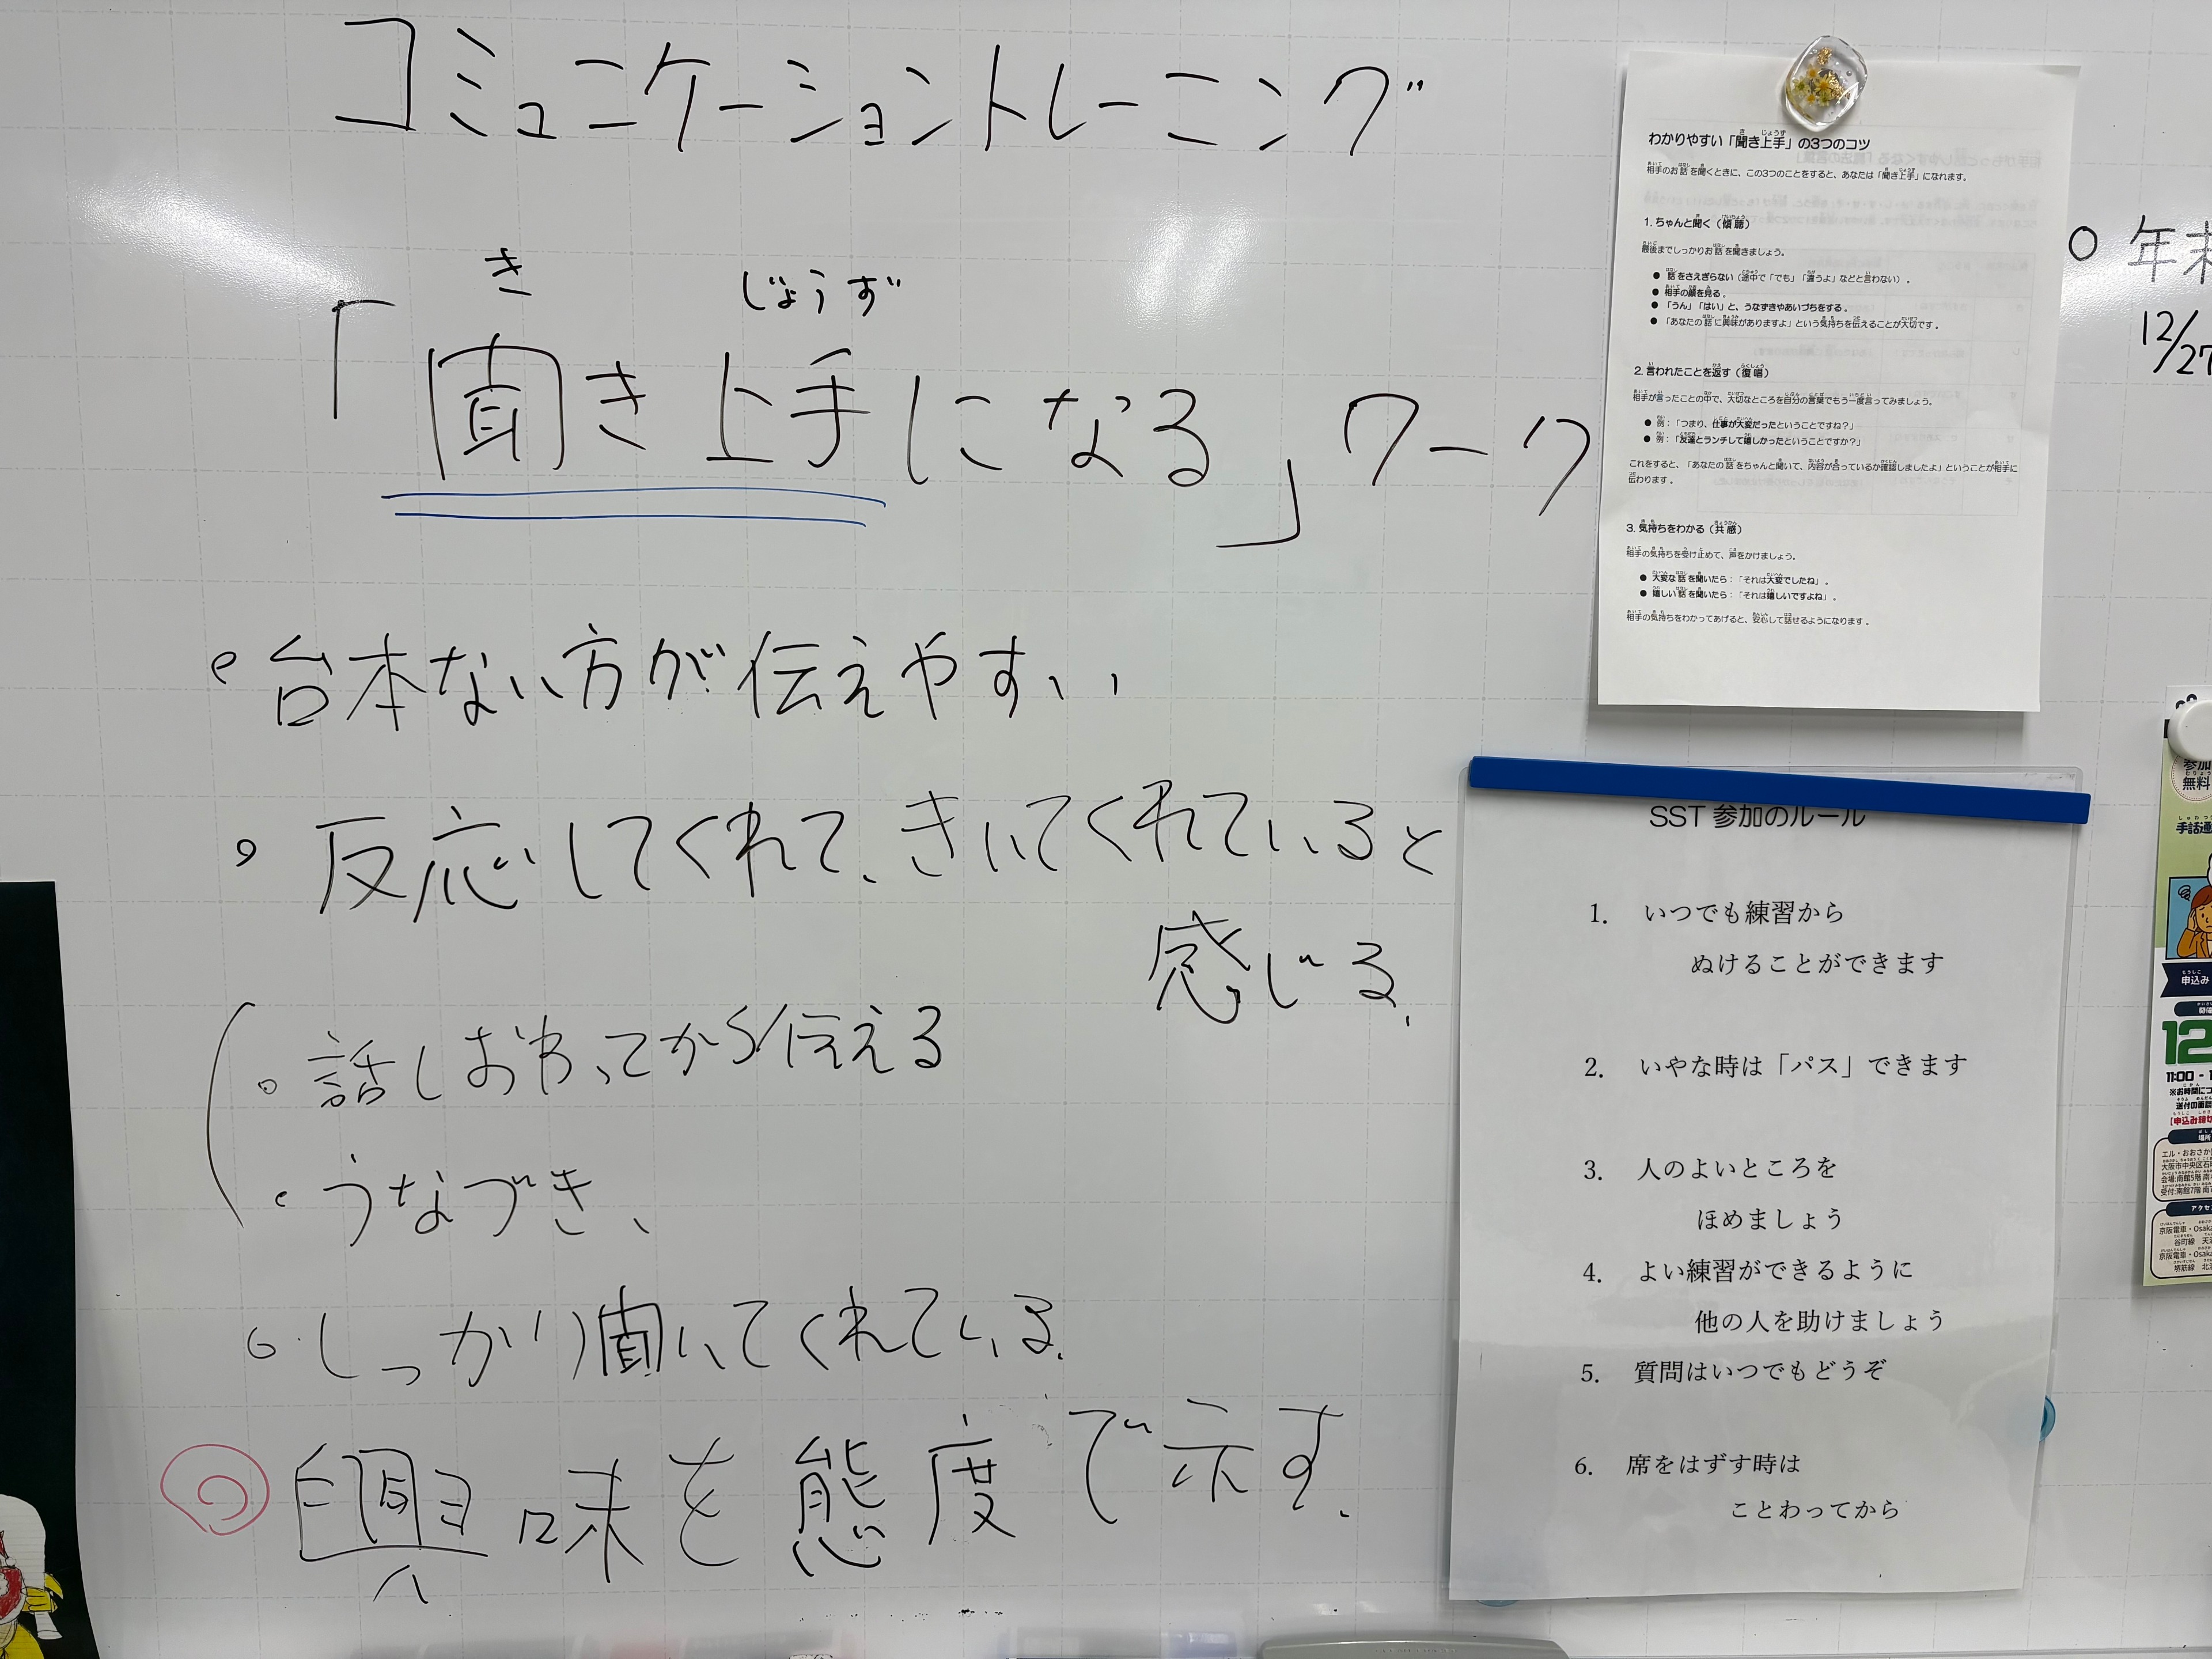 コミュニケーショントレーニング
き じょうず
「聞き上手になる」ワーク
・台本ない方が伝えやすい
・反応してくれて、きいてくれていると
感じる.
・話しおわってから伝える
・うなづき、
・しっかり聞いてくれている.
◎興味を態度で示す.
わかりやすい「聞き上手」の3つのコツ
相手のお話を聞くときに、この3つのことをすると、あなたは「聞き上手」になれます。
1. ちゃんと聞く(傾聴)
最後までしっかりお話を聞きましょう。
● 話をさえぎらない(途中で「でも」「違うよ」などと言わない)。
● 相手の顔を見る。
● 「うん」「はい」と、うなずきやあいづちをする。
● 「あなたの話に興味がありますよ」という気持ちを伝えることが大切です。
2. 言われたことを返す(復唱)
相手が言ったことの中で、大切なところを自分の言葉でもう一度言ってみましょう。
● 例:「つまり、仕事が大変だったということですね?」
● 例:「友達とランチして嬉しかったということですか?」
これをすると、「あなたの話をちゃんと聞いて、内容が合っているか確認しましたよ」ということが相手に
伝わります。
3. 気持ちをわかる(共感)
相手の気持ちを受け止めて、声をかけましょう。
● 大変な話を聞いたら:「それは大変でしたね」。
● 嬉しい話を聞いたら:「それは嬉しいですよね」。
相手の気持ちをわかってあげると、安心して話せるようになります。
SST 参加のルール
1. いつでも練習から
ぬけることができます
2. いやな時は「パス」できます
3. 人のよいところを
ほめましょう
4. よい練習ができるように
他の人を助けましょう
5. 質問はいつでもどうぞ
6. 席をはずす時は
ことわってから
○ 年末
12/27
参加
無料
手話通
申込み
12
11:00 - 1
場所
エル・おおさか
大阪市中央区石
会場:南館5階 南
受付:南館7階 南
アクセ
京阪電車・Osaka
谷町線 天
京阪電車・Osaka
堺筋線 北